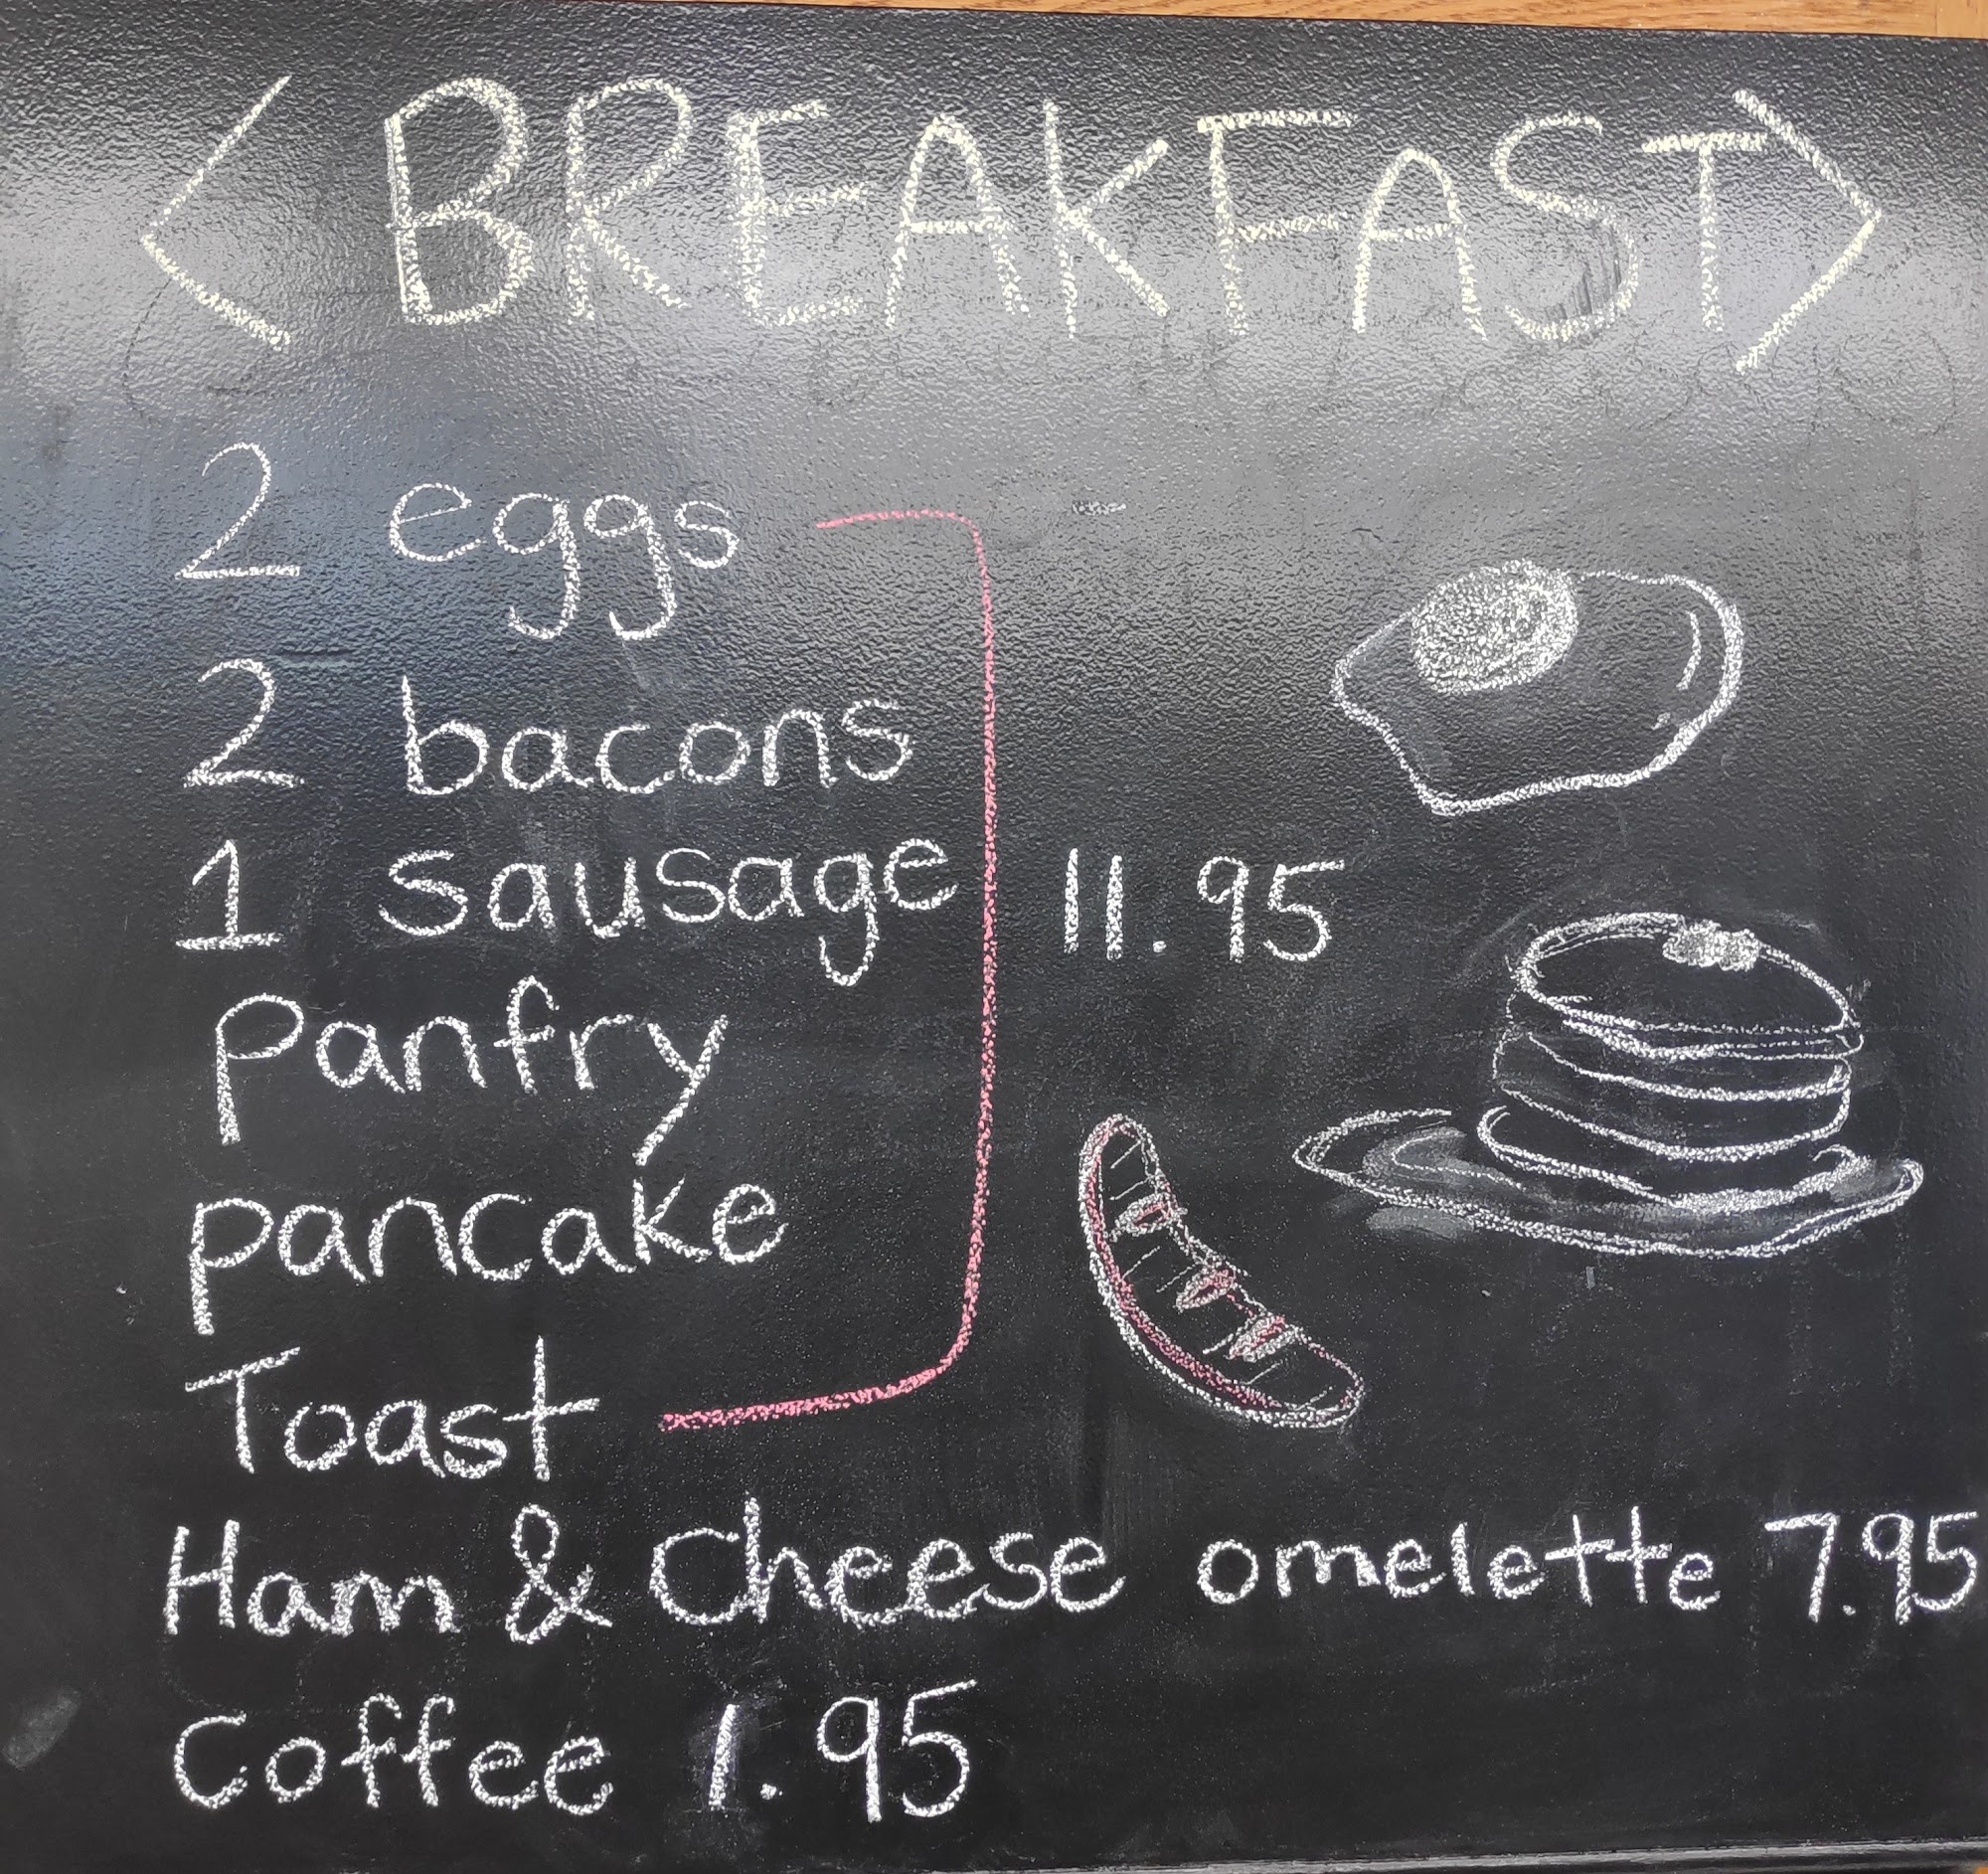 < BREAKFAST >
2 eggs
2 bacons
1 sausage 11.95
Panfry
pancake
Toast
Ham & Cheese omelette 7.95
Coffee 1.95